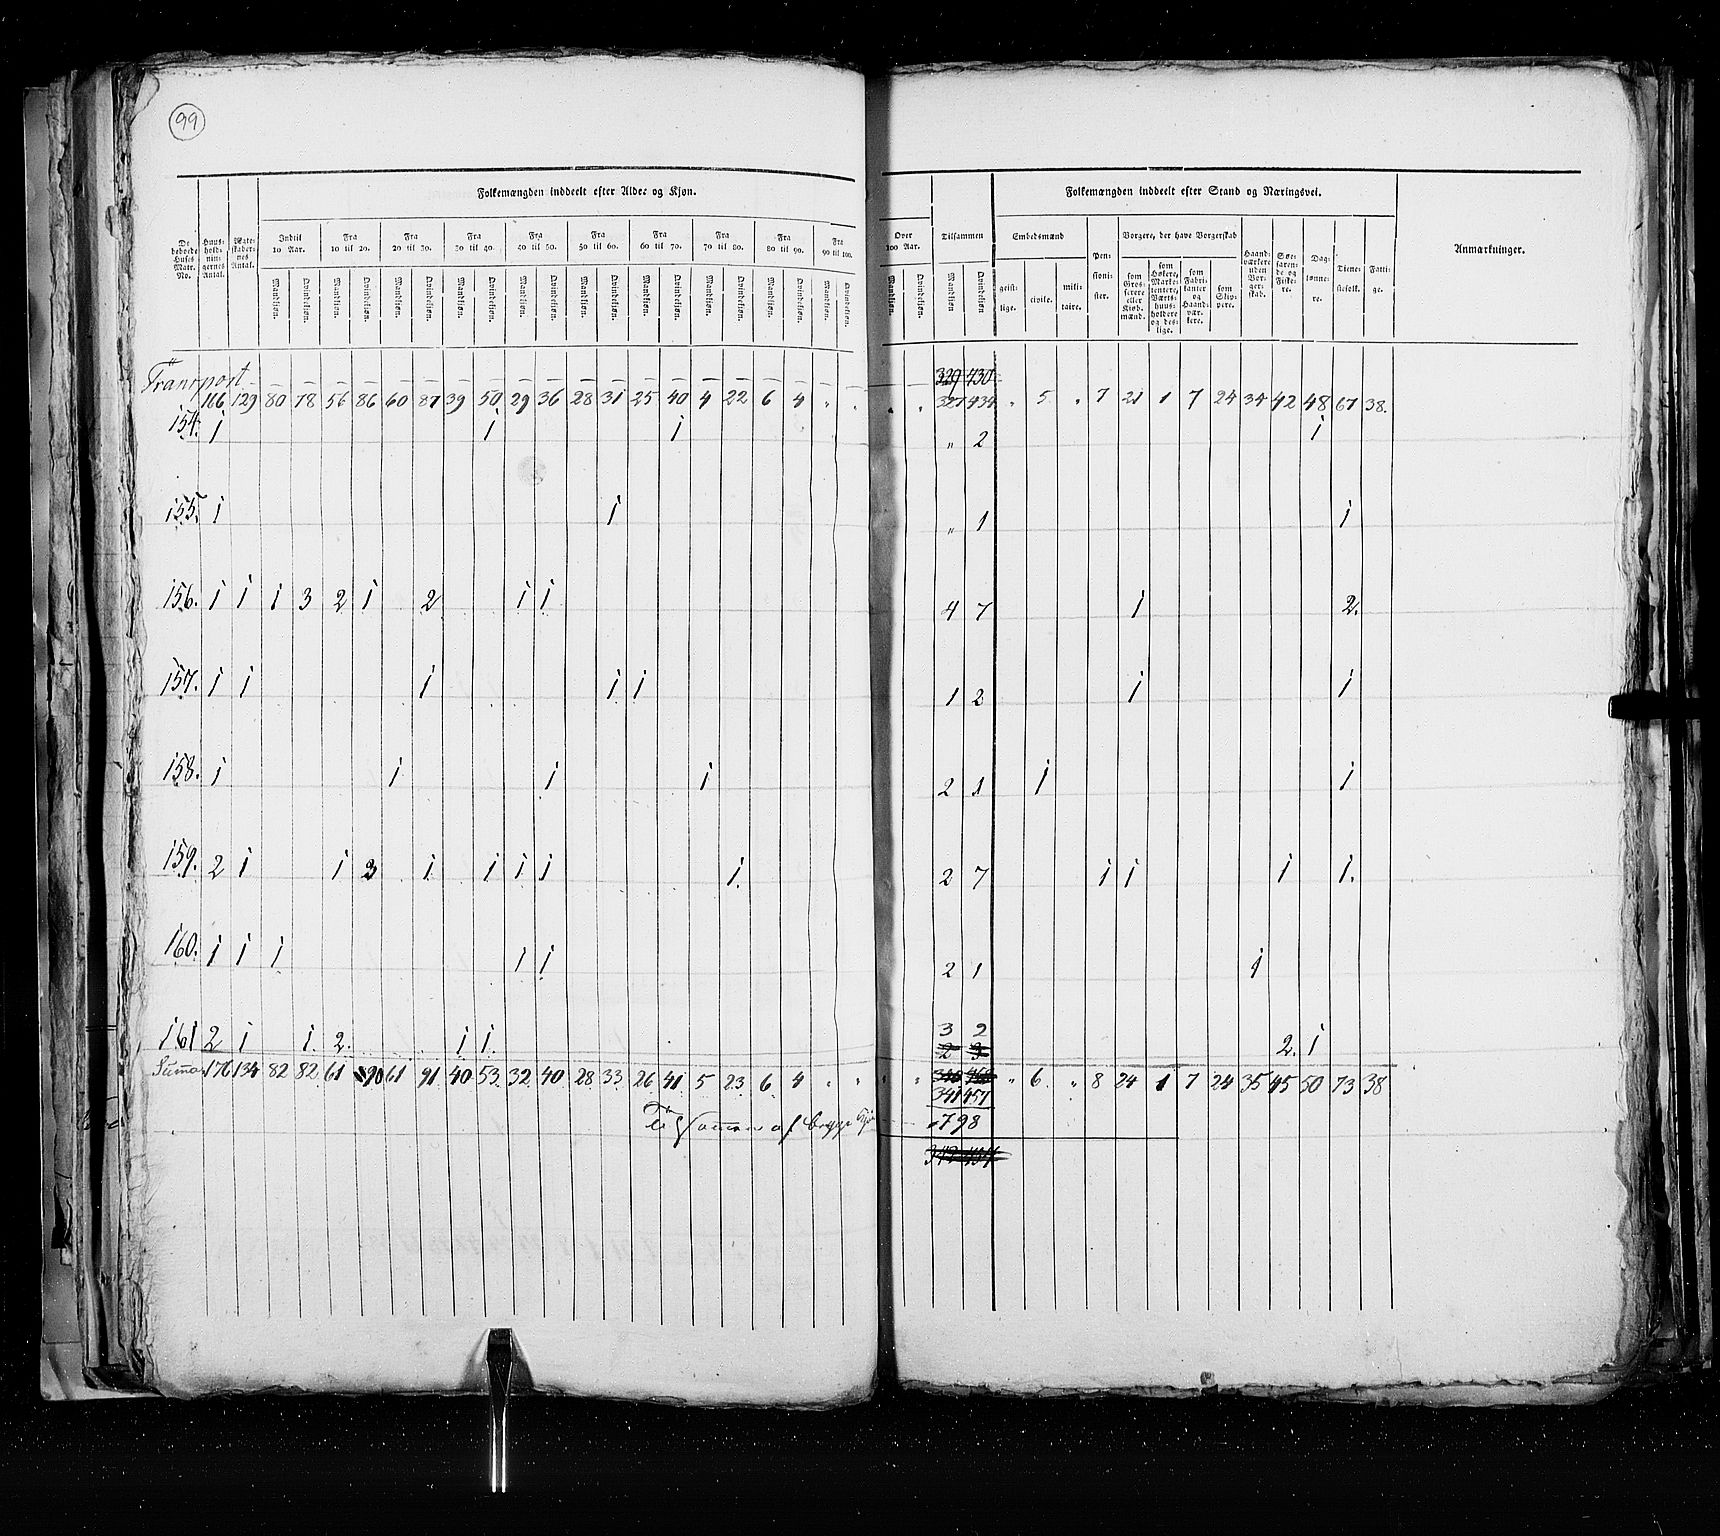 99
Folkemængden inddeelt efter Alder og Kjøn.
Over 100 Aar.
Tilsammen
Folkemængden inddeelt efter Stand og Næringsvei.
Anmærkninger.
De beboede Huses Matr. No.
Huusholdningernes Antal.
Ægteskabernes Antal.
Indtil 10 Aar.
Fra 10 til 20.
Fra 20 til 30.
Fra 30 til 40.
Fra 40 til 50.
Fra 50 til 60.
Fra 60 til 70.
Fra 70 til 80.
Fra 80 til 90.
Fra 90 til 100.
Mandkjøn. Qvindekjøn. Mandkjøn. Qvindekjøn. Mandkjøn. Qvindekjøn. Mandkjøn. Qvindekjøn. Mandkjøn. Qvindekjøn. Mandkjøn. Qvindekjøn. Mandkjøn. Qvindekjøn. Mandkjøn. Qvindekjøn. Mandkjøn. Qvindekjøn. Mandkjøn. Qvindekjøn. Mandkjøn. Qvindekjøn. Mandkjøn Qvindekjøn.
Embedsmænd
geistlige. civile. militaire.
Pensionister.
Borgere, der have Borgerskab
som Grosserere eller Kiøbmænd.
som Høkere, Marketentere, Værtshuusholdere og deslige.
som Fabrikanter og Haandværkere.
som Skippere.
Haandværkere uden Borgerskab.
Søefarende og Fiskere.
Daglønnere.
Tienestefolk.
Fattige.
Transport 329 430
166 129 80 78 56 86 60 87 39 50 29 36 28 31 25 40 4 22 6 4 " " " " 327 434 " 5 " 7 21 1 7 24 34 42 48 67 38.
154. 1 1 1 " 2 1
155. 1 1 " 1 1
156. 1 1 1 3 2 1 2 1 1 4 7 1 2.
157. 1 1 1 1 1 1 2 1 1
158. 1 1 1 1 2 1 1 1
159. 2 1 1 3 1 1 1 1 1. 2 7 1 1 1 1.
160. 1 1 1 1 1 2 1 1
3 2
161 2 1 1. 2. 1 1. 2 3 2. 1
Suma. 176 134 82 82 61 90 61 91 40 53 32 40 28 33 26 41 5 23 6 4 " " " " " 6. " 8 24 1 7 24 35 45 50 73 38
341 457
Tilsammen af begge Kjøn 798